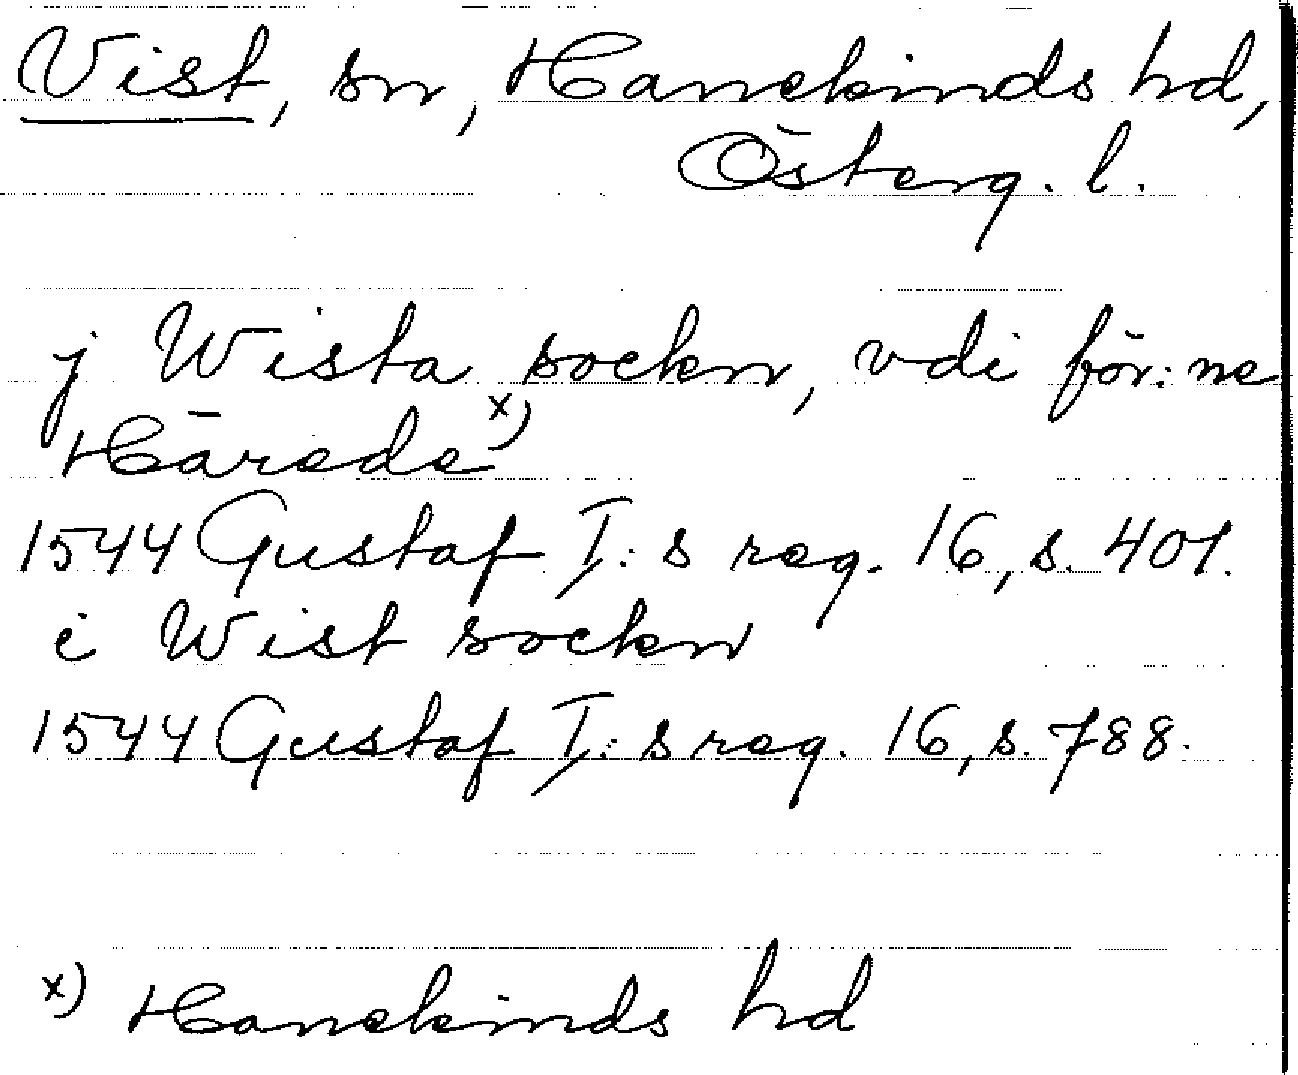 Vist, sn, Hanekinds hd,
Österg. l.
j Wista sockn, vdi för:ne
Härade x)
1544 Gustaf I:s reg. 16, s. 401.
i Wist sockn
1544 Gustaf I:s reg. 16, s. 788.
x) Hanekinds hd